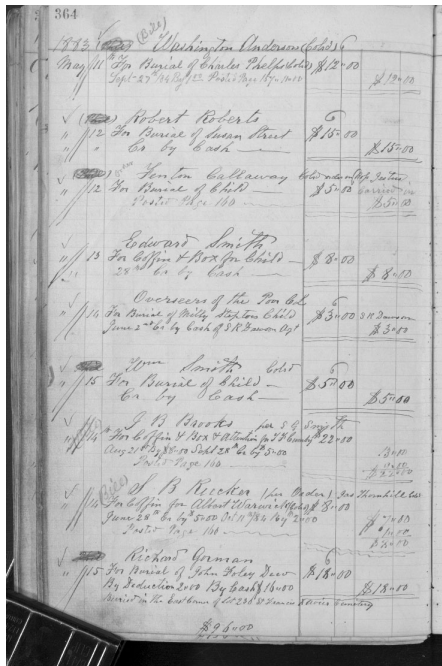 364
1883 (Bill) Washington Anderson (Cold) 6
May 11 For Burial of Charles Phelps (Cold) $12=00
Sept 27th /84 By $12= Posted Page 157= 12=00 $12=00
Robert Roberts 6
" 12 For Burial of Susan Street $15=00
" " Cr By Cash — $15=00
Fenton Callaway Cold
" 12 For Burial of Child — $5=00
Posted Page 160 — $5=00
Edward Smith
" 13 For Coffin & Box for Child — $8=00
28th Cr By Cash — $8=00
Overseers of the Poor 6
" 14 For Burial of Milly Steptons Child $3=00 S R Dawson
June 2nd Cr By Cash of S R Dawson Agt $3=00
Wm Smith Cold 6
" 15 For Burial of Child — $5=00
Cr By Cash — $5=00
J B Brooks per S G Smyth
" 14th For Coffin & Box & Attention $22=00
Aug 21st By $8=00 Sept 28th Cr By 5=00
Posted Page 160
(Bill) S B Rucker (per Order) Jas Thornhill
" 14 For Coffin for Albert Warwick (Cold) $8=00
June 28th Cr By 5=00 Oct 11th /84 By $2=00
Posted Page 160
Richard Gorman 6
" 15 For Burial of John Foley Decd $18=00
By Deduction 2=00 By Cash $16=00 $18=00
Buried in the East Corner of Lot St Francis Xavier Cemetery
$96=00